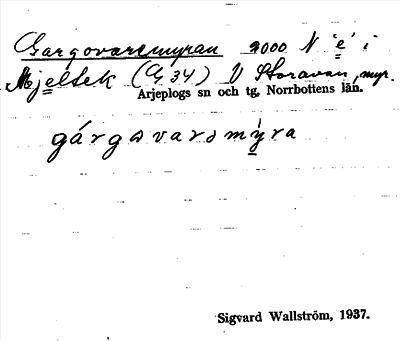 Gargovaremyran 2000 N 'e' i
Mjeltek (G 34) V Storavan, myr.
Arjeplogs sn och tg, Norrbottens län.
gárgɷvarəmỳra
Sigvard Wallström, 1937.